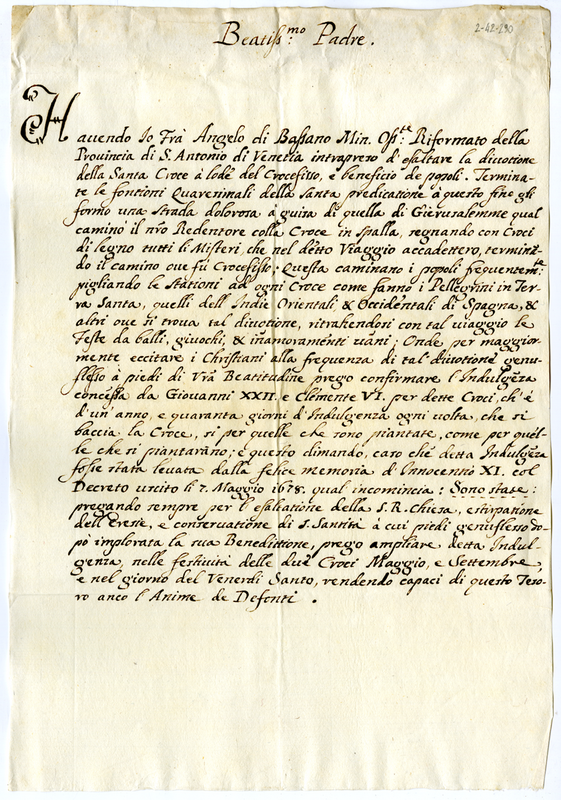 2-42-290
Beatiss:mo Padre.
Hauendo Io Frà Angelo di Bassano Min. Oss:te Riformato della
Prouincia di S. Antonio di Venetia intrapreso d'esaltare la diuotione
della Santa Croce à lode del Crocefisso, è beneficio de popoli. Termina-
te le fontioni Quaresimali della santa predicatione à questo fine gli
formo una strada dolorosa à guisa di quella di Gierusalemme qual
caminò il nr̃o Redentore colla Croce in spalla, segnando con Croci
di legno tutti li Misteri, che nel detto Viaggio accaddettero, terminã-
do il camino oue fù Crocefisso: Questa caminano i popoli frequentem:te
pigliando le Stationi ad ogni Croce come fanno i Pellegrini in Ter-
ra Santa, quelli dell'Indie Orientali, & Occidentali di Spagna, &
altri oue si troua tal diuotione, ritrahendosi con tal uiaggio le
Feste da balli, giuochi, & inamoramenti uani; Onde per maggior-
mente eccitare i Christiani alla frequenza di tal diuotione genu-
flesso à piedi di Vr̃a Beatitudine prego confirmare l'Indulgẽza
concessa da Giouanni XXII. e Clemente VI. per dette Croci, ch'è
d'un'anno, e quaranta giorni d'Indulgenza ogni uolta, che si
baccia la Croce, si per quelle che sono piantate, come per quel-
le che si piantaranno; è questo dimando, caso che detta Indulgẽza
fosse stata leuata dalla felice memoria d'Innocentio XI. col
Decreto uscito li 7. Maggio 1678. qual incomincia: Sono state:
pregando sempre per l'esaltatione della S. R. Chiesa, estirpatione
dell'Eresie, e conseruatione di S. Santità à cui piedi genuflesso do-
pò implorata la sua Benedittione, prego ampliare detta Indul-
genza, nelle festiuità delle due Croci Maggio, e Settembre,
e nel giorno del Venerdì Santo, rendendo capaci di questo Teso-
ro anco l'Anime de Defonti.